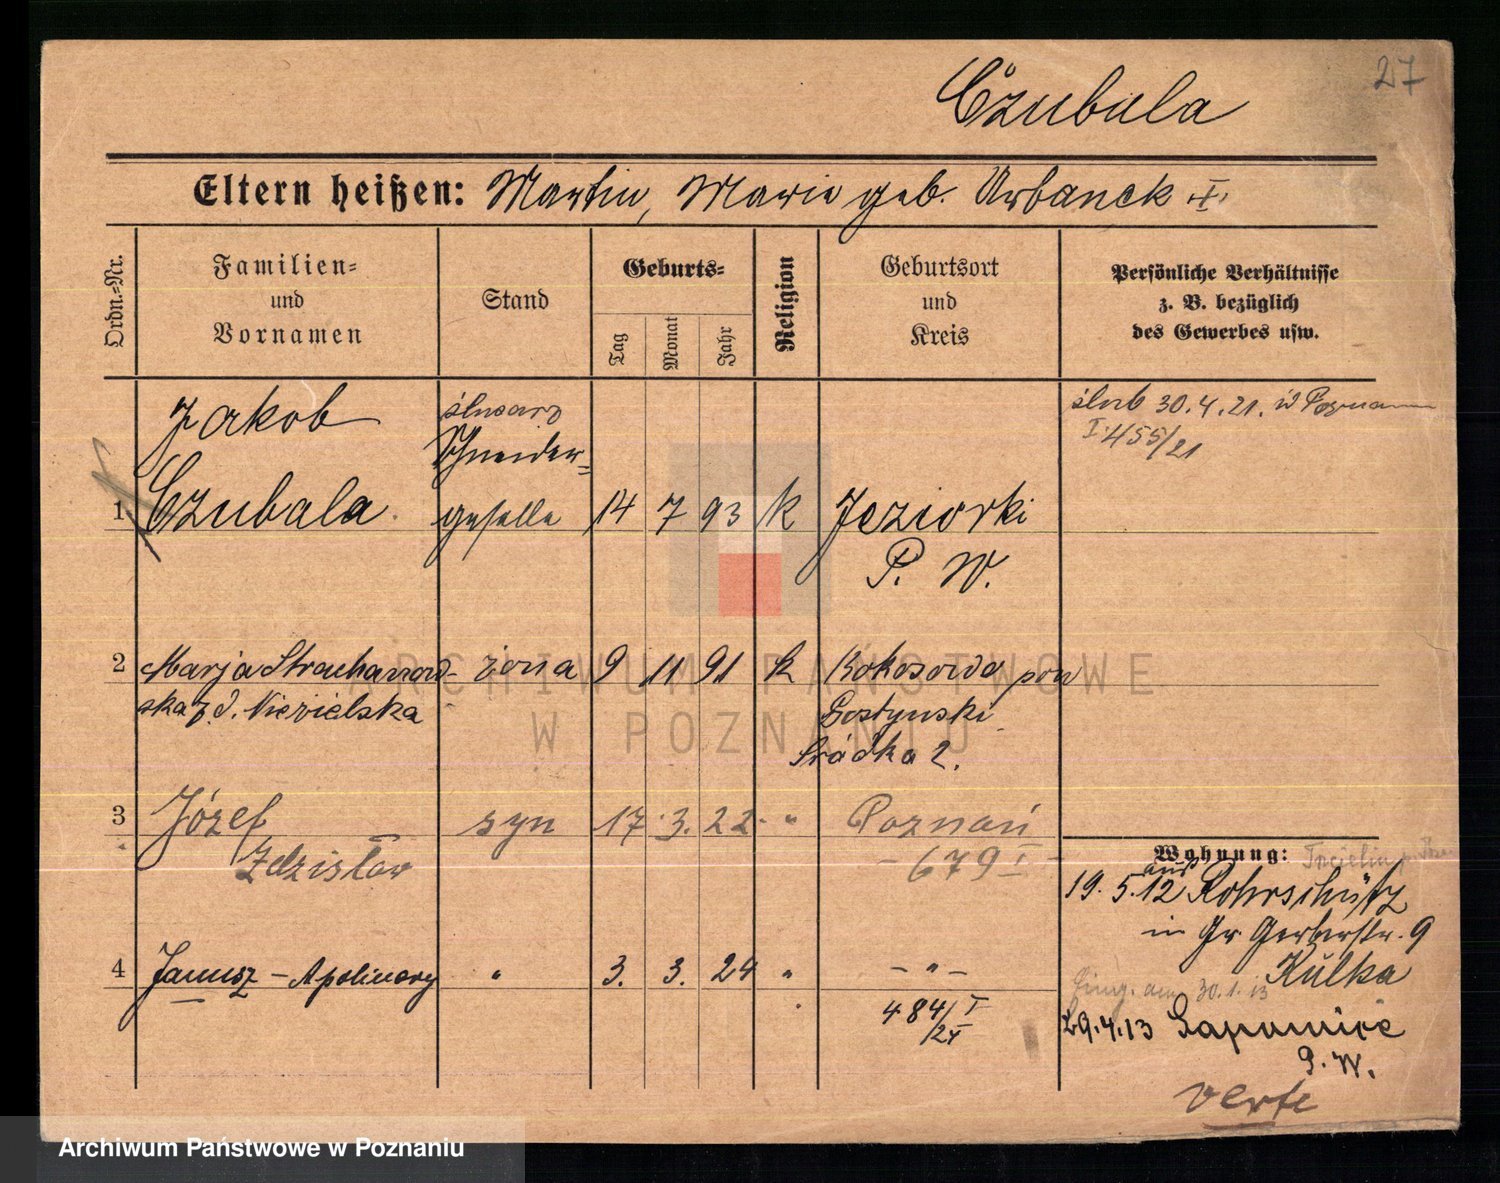 27
Czubala
Eltern heißen: Martin, Marie geb. Urbanek
Ordn.-Nr.
Familien-
und
Vornamen
Stand
Geburts-
Tag
Monat
Jahr
Religion
Geburtsort
und
Kreis
Persönliche Verhältnisse
z. B. bezüglich
des Gewerbes usw.
ślub 30.4.21. w Poznaniu
I 455/21
Jakob
ślusarz
Schneider-
1 Czubala geselle 14 7 93 k Jeziorki
P. W.
2 Marja Strachanow- żona 9 11 91 k Kokosowo pow
ska z d. Niezielska Gostynski
Śródka 2.
3 Józef syn 17. 3. 22. " Poznań
Zdzisław - 679 I -
4 Janusz - Apolinary " 3. 3. 24 " - " -
484/24 I
Wohnung:
19. 5. 12 aus Rohrschütz
in Gr. Gerberstr. 9
Kulka
30.1.13
29.4.13
P. W.
verte
ARCHIWUM PAŃSTWOWE
W POZNANIU
Archiwum Państwowe w Poznaniu